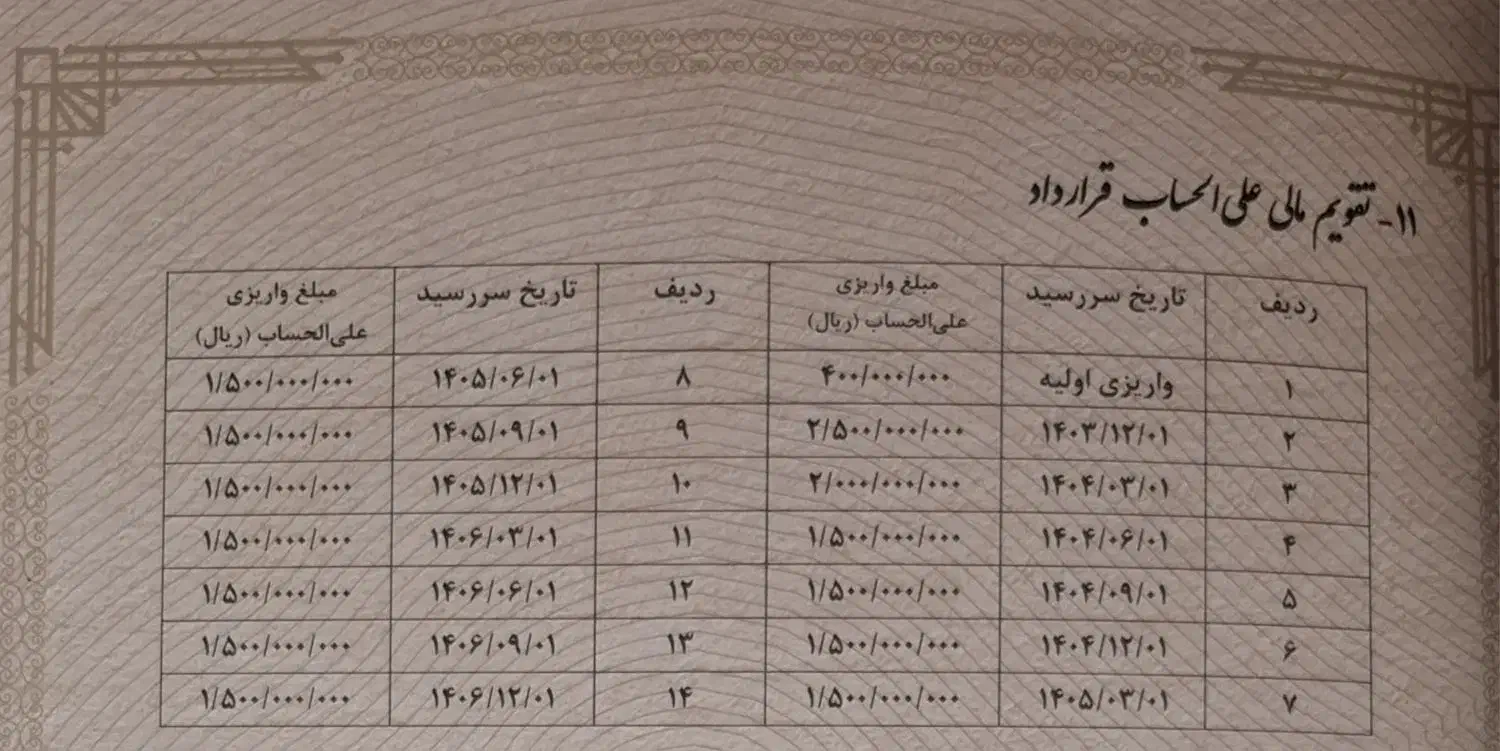 ۱۱- تقویم مالی علی‌الحساب قرارداد
ردیف | تاریخ سررسید | مبلغ واریزی علی‌الحساب (ریال) | ردیف | تاریخ سررسید | مبلغ واریزی علی‌الحساب (ریال)
۱ | واریزی اولیه | ۴۰۰/۰۰۰/۰۰۰ | ۸ | ۱۴۰۵/۰۶/۰۱ | ۱/۵۰۰/۰۰۰/۰۰۰
۲ | ۱۴۰۳/۱۲/۰۱ | ۲/۵۰۰/۰۰۰/۰۰۰ | ۹ | ۱۴۰۵/۰۹/۰۱ | ۱/۵۰۰/۰۰۰/۰۰۰
۳ | ۱۴۰۴/۰۳/۰۱ | ۲/۰۰۰/۰۰۰/۰۰۰ | ۱۰ | ۱۴۰۵/۱۲/۰۱ | ۱/۵۰۰/۰۰۰/۰۰۰
۴ | ۱۴۰۴/۰۶/۰۱ | ۱/۵۰۰/۰۰۰/۰۰۰ | ۱۱ | ۱۴۰۶/۰۳/۰۱ | ۱/۵۰۰/۰۰۰/۰۰۰
۵ | ۱۴۰۴/۰۹/۰۱ | ۱/۵۰۰/۰۰۰/۰۰۰ | ۱۲ | ۱۴۰۶/۰۶/۰۱ | ۱/۵۰۰/۰۰۰/۰۰۰
۶ | ۱۴۰۴/۱۲/۰۱ | ۱/۵۰۰/۰۰۰/۰۰۰ | ۱۳ | ۱۴۰۶/۰۹/۰۱ | ۱/۵۰۰/۰۰۰/۰۰۰
۷ | ۱۴۰۵/۰۳/۰۱ | ۱/۵۰۰/۰۰۰/۰۰۰ | ۱۴ | ۱۴۰۶/۱۲/۰۱ | ۱/۵۰۰/۰۰۰/۰۰۰